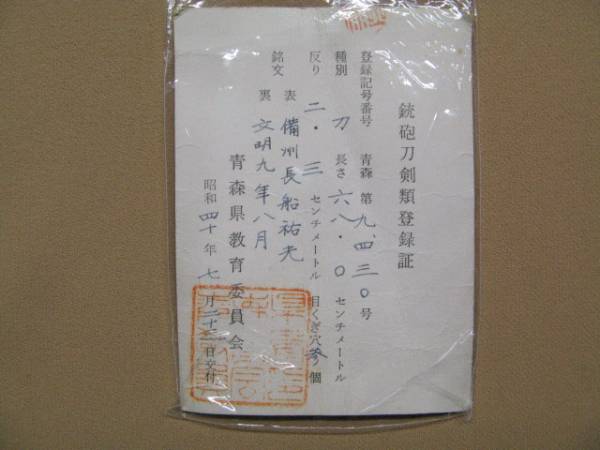 銃砲刀剣類登録証
登録記号番号 青森 第九、四三〇号
種別 刀 長さ 六八・〇 センチメートル
反り 二・三 センチメートル 目くぎ穴 参 個
銘文 表 備州長船祐光
裏 文明九年八月
青森県教育委員会
昭和四十年七月二十二日交付